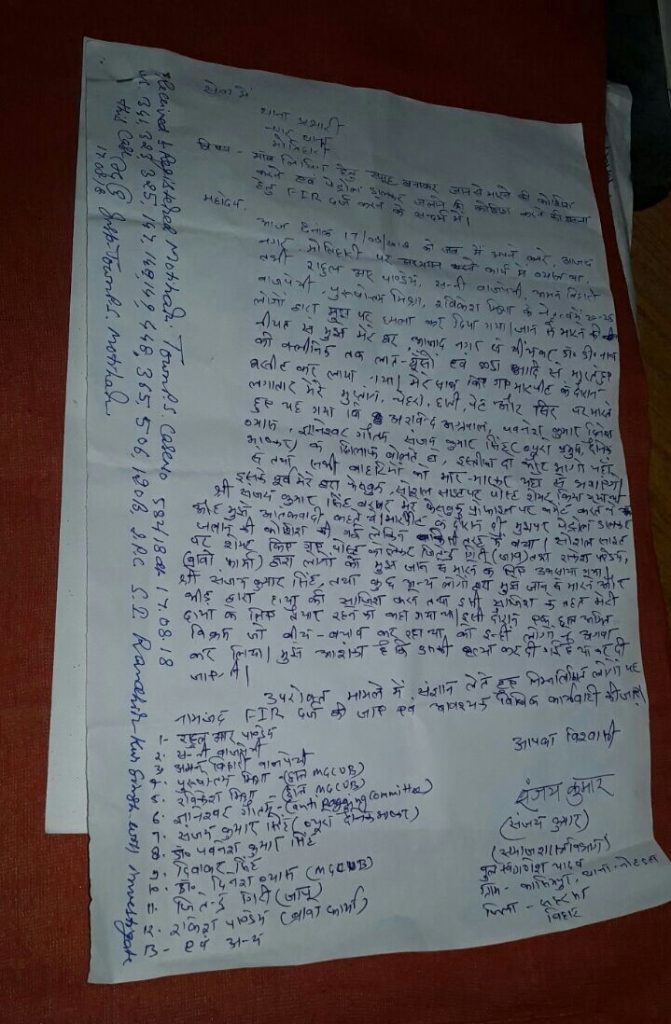 सेवा में
थाना प्रभारी
नगर थाना
मोतिहारी
विषय - मॉब लिंचिंग हेतु समूह बनाकर जान से मारने की कोशिश
करने एवं पेट्रोल डालकर जलाने की कोशिश करने की घटना
हेतु FIR दर्ज करने के संदर्भ में।
महोदय,
आज दिनांक 17/08/2018 को जब मैं अपने कमरे, आजाद
नगर, मोतिहारी पर अध्ययन कार्य में व्यस्त था
तभी राहुल आर पाण्डेय, सन्नी वाजपेयी, अमन बिहारी
वाजपेयी, पुरुषोत्तम मिश्रा, रविकेश मिश्रा के नेतृत्व में 20-25
लोगों द्वारा मुझ पर हमला कर दिया गया। जान से मारने की
नीयत से मुझे मेरे घर आजाद नगर से खींचकर डॉ.
की क्लीनिक तक लात-घूंसों एवं डंडा आदि से
घसीट कर लाया गया। मेरे साथ किए गए मारपीट के दौरान
लगातार मेरे गुप्तांग, चेहरा, छाती, पेट और सिर पर मारते
हुए कहा गया कि अरविंद अग्रवाल, पवनेश कुमार, दिनेश
व्यास, ज्ञानेश्वर गौतम, संजय कुमार सिंह (ब्यूरो प्रमुख, दैनिक
भास्कर) के खिलाफ बोलते हो, इस्तीफा दो और भागो यहां
से तथा सभी बाहरियों को मार-मारकर यहां से भगाएंगे।
इसके पूर्व मेरे द्वारा फेसबुक, सोशल साइट पर पोस्ट शेयर किया गया था
श्री संजय कुमार सिंह मेरे फेसबुक प्रोफाइल पर कमेंट करते
और मुझे आतंकवादी कहते थे। मारपीट के दौरान ही मुझपर पेट्रोल डालकर
जलाने की कोशिश की गई लेकिन किसी तरह मैं बचा। सोशल साइट
पर शेयर किए गए पोस्ट को लेकर जितेन्द्र गिरी (जापु) तथा राकेश पाण्डेय,
(बाबा फार्मा) द्वारा लोगों को मुझे जान से मारने के लिए उकसाया गया।
श्री संजय कुमार सिंह, तथा कुछ अन्य लोगों द्वारा मुझे जान से मारने और
भीड़ द्वारा हत्या की साजिश करने तथा इसी साजिश के तहत मेरी
हत्या के लिए तैयार रहने को कहा गया था। इसी दौरान
विक्रम जो बीच-बचाव कर रहा था, को इन्हीं लोगों ने अगवा
कर लिया। मुझे आशंका है कि उसकी हत्या कर दी गई है या कर दी
जाएगी।
उपरोक्त मामले में संज्ञान लेते हुए निम्नलिखित लोगों पर
नामजद FIR दर्ज की जाए एवं आवश्यक विधिक कार्यवाही की जाए।
1- राहुल आर पाण्डेय
2- सन्नी वाजपेयी
3- अमन बिहारी वाजपेयी
4- पुरुषोत्तम मिश्रा - (छात्र MGCUB)
5- रविकेश मिश्रा - (छात्र MGCUB)
6- ज्ञानेश्वर गौतम - (anti Ragging Committee)
7- संजय कुमार सिंह (ब्यूरो दैनिक भास्कर)
8- डॉ. पवनेश कुमार सिंह
9- दिवाकर सिंह
10- डॉ. दिनेश व्यास (MGCUB)
11- जितेन्द्र गिरी (जापु)
12- राकेश पाण्डेय (बाबा फार्मा)
13- एवं अन्य
आपका विश्वासी
संजय कुमार
(संजय कुमार)
(समाजशास्त्र विभाग)
पुत्र यादव
ग्राम-
जिला -
बिहार
Received & Registered Motihari Town P.S Case no 587/18 dt 17.08.18
U/s 341, 323, 325, 147, 148, 149, 448, 365, 506, 120B I.P.C S.I. Ranadhir Kr Singh will investigate
this Case
Town P.S Motihari
17.08.18